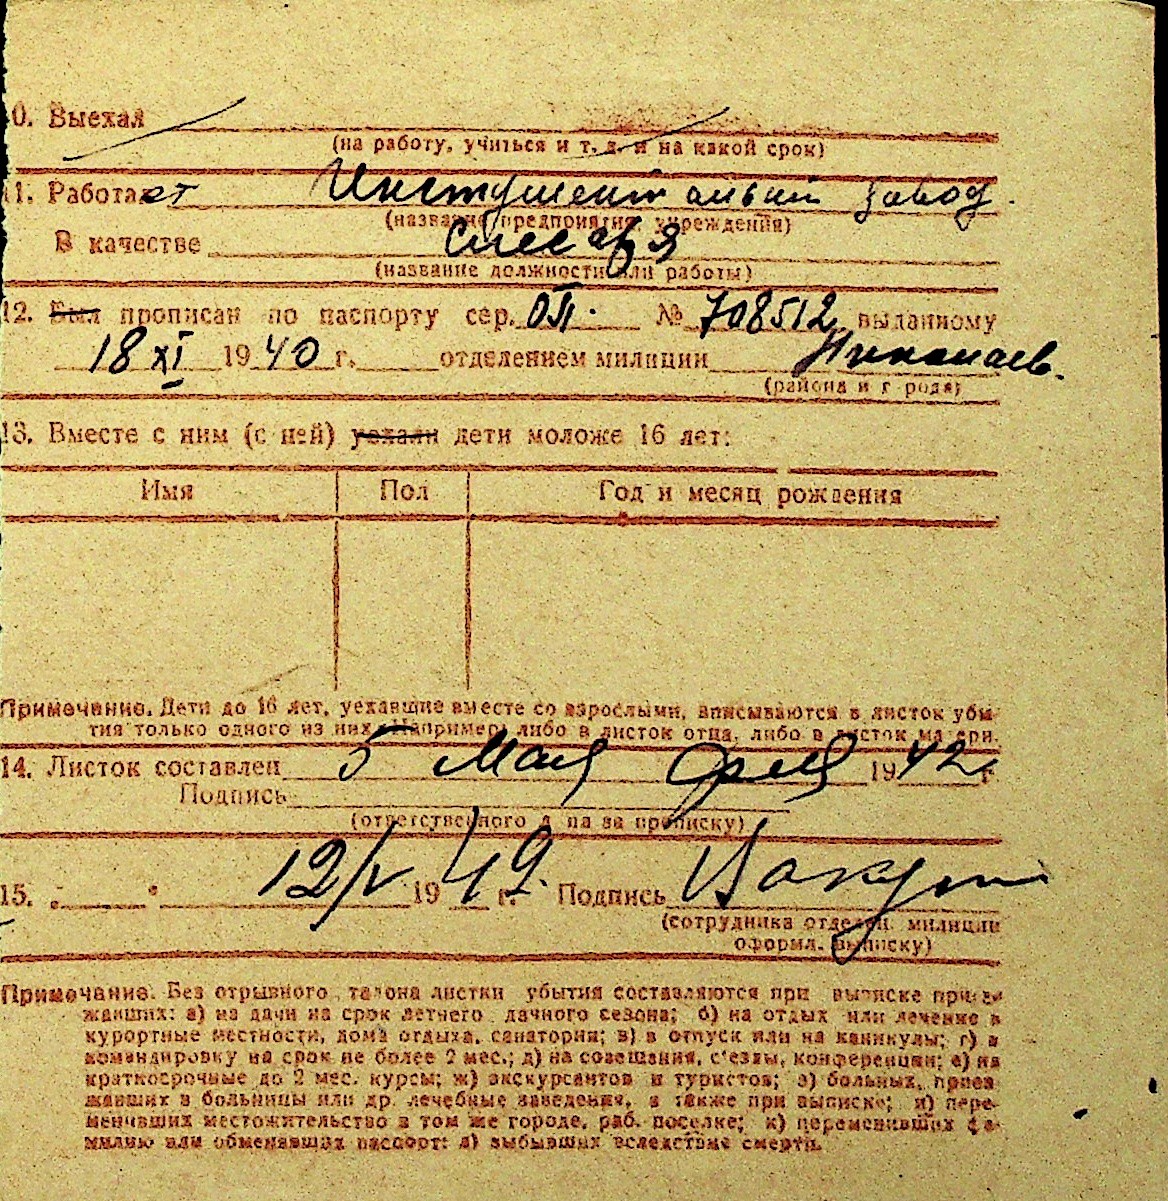 0. Выехал
(на работу, учиться и т. д. и на какой срок)
11. Работает Инструментальный завод.
(название предприятия, учреждения)
В качестве слесаря
(название должности или работы)
12. Был прописан по паспорту сер. ОП. № 708512 выданному
18 XI 1940 г. отделением милиции Николаев.
(района и города)
13. Вместе с ним (с ней) уехали дети моложе 16 лет:
Имя Пол Год и месяц рождения
Примечание. Дети до 16 лет, уехавшие вместе со взрослыми, вписываются в листок убы-
тия только одного из них. Например: либо в листок отца, либо в листок матери.
14. Листок составлен 5 Мая 1942 г.
Подпись
(ответственного л-ца за прописку)
15. 12/V 1942 г. Подпись
(сотрудника отделен. милиции
оформл. выписку)
Примечание. Без отрывного талона листки убытия составляются при выписке приез-
жавших: а) на дачи на срок летнего дачного сезона; б) на отдых или лечение в
курортные местности, дома отдыха, санатории; в) в отпуск или на каникулы; г) в
командировку на срок не более 2 мес.; д) на совещания, с'езды, конференции; е) на
краткосрочные до 2 мес. курсы; ж) экскурсантов и туристов; з) больных, приез-
жавших в больницы или др. лечебные заведения, а также при выписке; и) пере-
менивших местожительство в том же городе, раб. поселке; к) переменивших фа-
милию или обменявших паспорт; л) выбывших вследствие смерти.